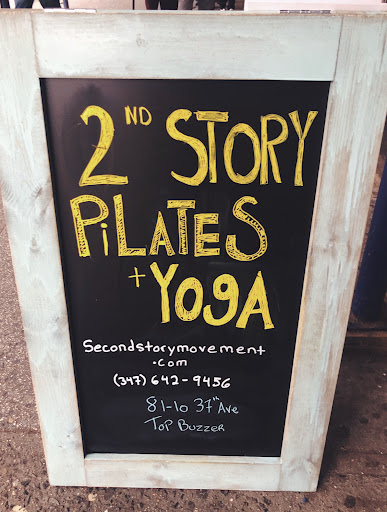 2ND STORY
PiLATES
+ YOgA
Secondstorymovement
.com
(347) 642-9456
81-10 37th Ave
Top Buzzer